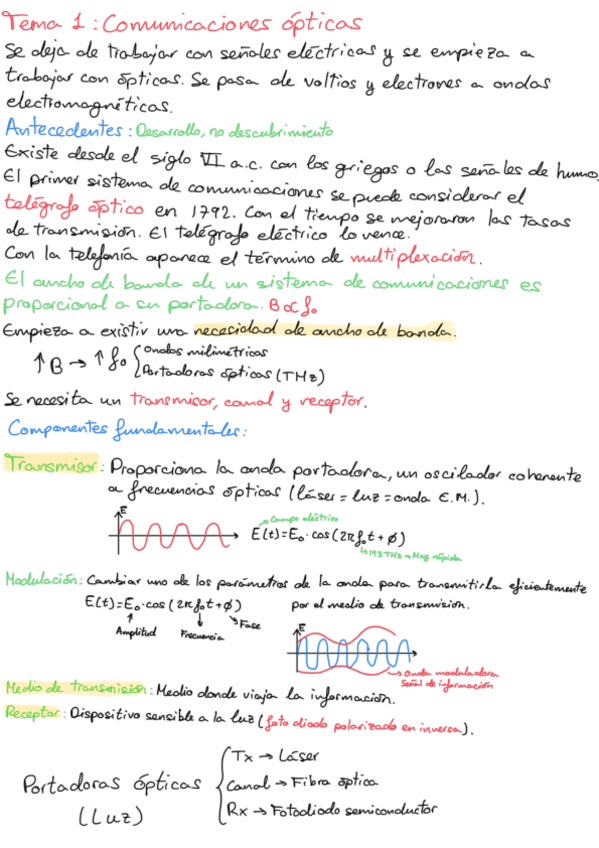 Tema 1: Comunicaciones ópticas
Se deja de trabajar con señales eléctricas y se empieza a
trabajar con ópticas. Se pasa de voltios y electrones a ondas
electromagnéticas.
Antecedentes: Desarrollo, no descubrimiento
Existe desde el siglo VI a.c. con los griegos o las señales de humo.
El primer sistema de comunicaciones se puede considerar el
telégrafo óptico en 1792. Con el tiempo se mejoraron las tasas
de transmisión. El telégrafo eléctrico lo vence.
Con la telefonía aparece el término de multiplexación.
El ancho de banda de un sistema de comunicaciones es
proporcional a su portadora. B∝f₀
Empieza a existir una necesidad de ancho de banda.
↑B → ↑f₀ { Ondas milimétricas
Portadoras ópticas (THz)
Se necesita un transmisor, canal y receptor.
Componentes fundamentales:
Transmisor: Proporciona la onda portadora, un oscilador coherente
a frecuencias ópticas (láser = luz = onda E.M.).
E
Campo eléctrico
E(t)=E₀·cos(2πf₀t+φ)
193 THz → Muy rápida
Modulación: Cambiar uno de los parámetros de la onda para transmitirla eficientemente
por el medio de transmisión.
E(t)=E₀·cos(2πf₀t+φ)
Amplitud Frecuencia Fase
E
Onda moduladora
Señal de información
Medio de transmisión: Medio donde viaja la información.
Receptor: Dispositivo sensible a la luz (foto diodo polarizado en inversa).
Portadoras ópticas
(Luz)
{ Tx → Láser
Canal → Fibra óptica
Rx → Fotodiodo semiconductor